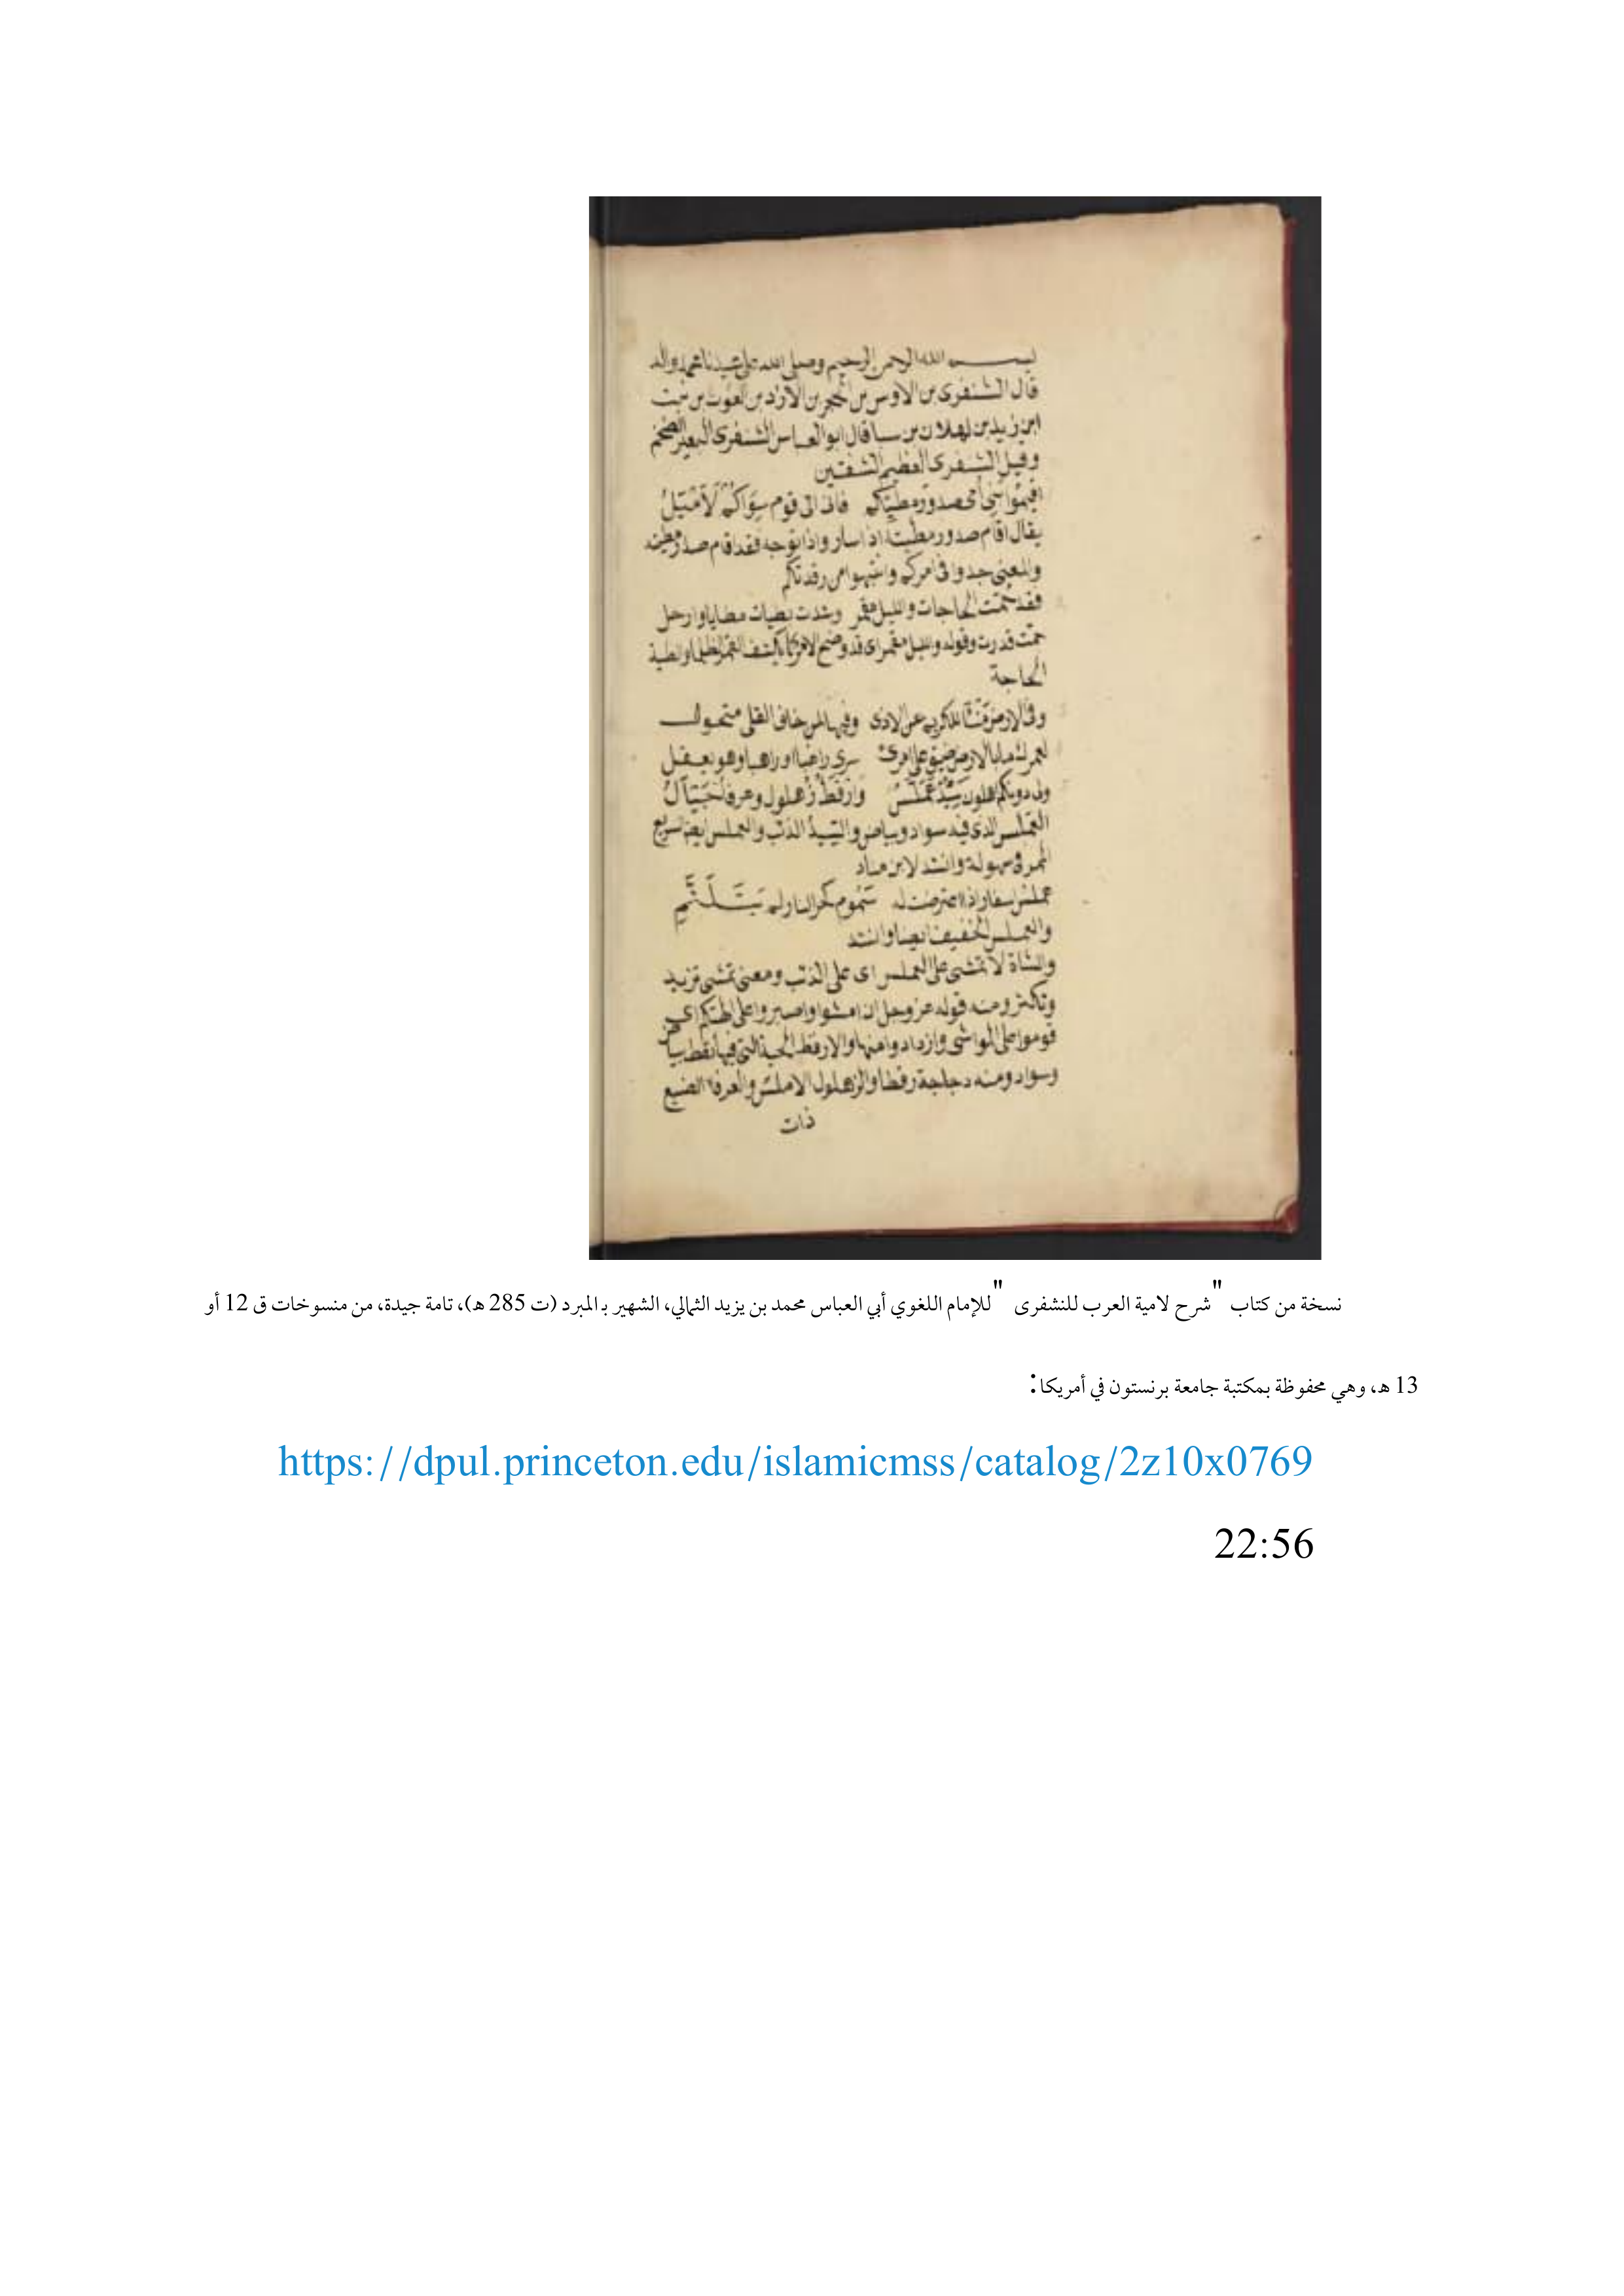 بســـم الله الرحمن الرحيم وصلى الله على سيدنا محمد واله
قال الشنفرى بن الاوس بن الحجر بن الازد بن الغوث بن نبت
ابن زيد بن كهلان بن سبا قال ابو العباس الشنفرى البعير الضخم
وقيل الشنفرى العظيم الشفتين
اقيموا بني امي صدور مطيكم فانى الى قوم سواكم لأميل
يقال اقام صدور مطيته اذا سار واذا توجه فقد اقام صدر مطيته
والمعنى جدوا فى امركم وانتبهوا من رقدتكم
فقد حمت الحاجات والليل مقمر وشدت لطيات مطايا وارحل
حمت قدرت وقوله والليل مقمر اى قد وضح الامر كما يكشف القمر الظلما والطية
الحاجة
وفى الارض منأ للكريم عن الاذى وفيها لمن خاف القلى متحول
لعمرك ما بالارض ضيق على امرئ سرى راغبا او راهبا وهو يعقل
ولى دونكم اهلون سيد عملس وارقط زهلول وعرفا جيأل
العملس الذى فيه سواد وبياض والسيد الذئب والعملس ايضا سريع
الممر فى سهولة وانشد لابن مياد
عملس اسفار اذا اعترضت له سموم كحر النار لم يتلثم
والعملس الخفيف ايضا وانشد
والشاة لا تمشى على العملس اى على الذئب ومعنى تمشى تزيد
وتكثر ومنه قوله عز وجل ان امشوا واصبروا على الهتكم اى
قوموا على المواشى وازدادوا منها والارقط الحية التى فيها نقط بياض
وسواد ومنه دجاجة رقطا والزهلول الاملس والعرفا الضبع
ذات
نسخة من كتاب "شرح لامية العرب للنشفرى "للإمام اللغوي أبي العباس محمد بن يزيد الثمالي، الشهير بـ المبرد (ت 285 هـ)، تامة جيدة، من منسوخات ق 12 أو
13 هـ، وهي محفوظة بمكتبة جامعة برنستون في أمريكا:
https://dpul.princeton.edu/islamicmss/catalog/2z10x0769
22:56